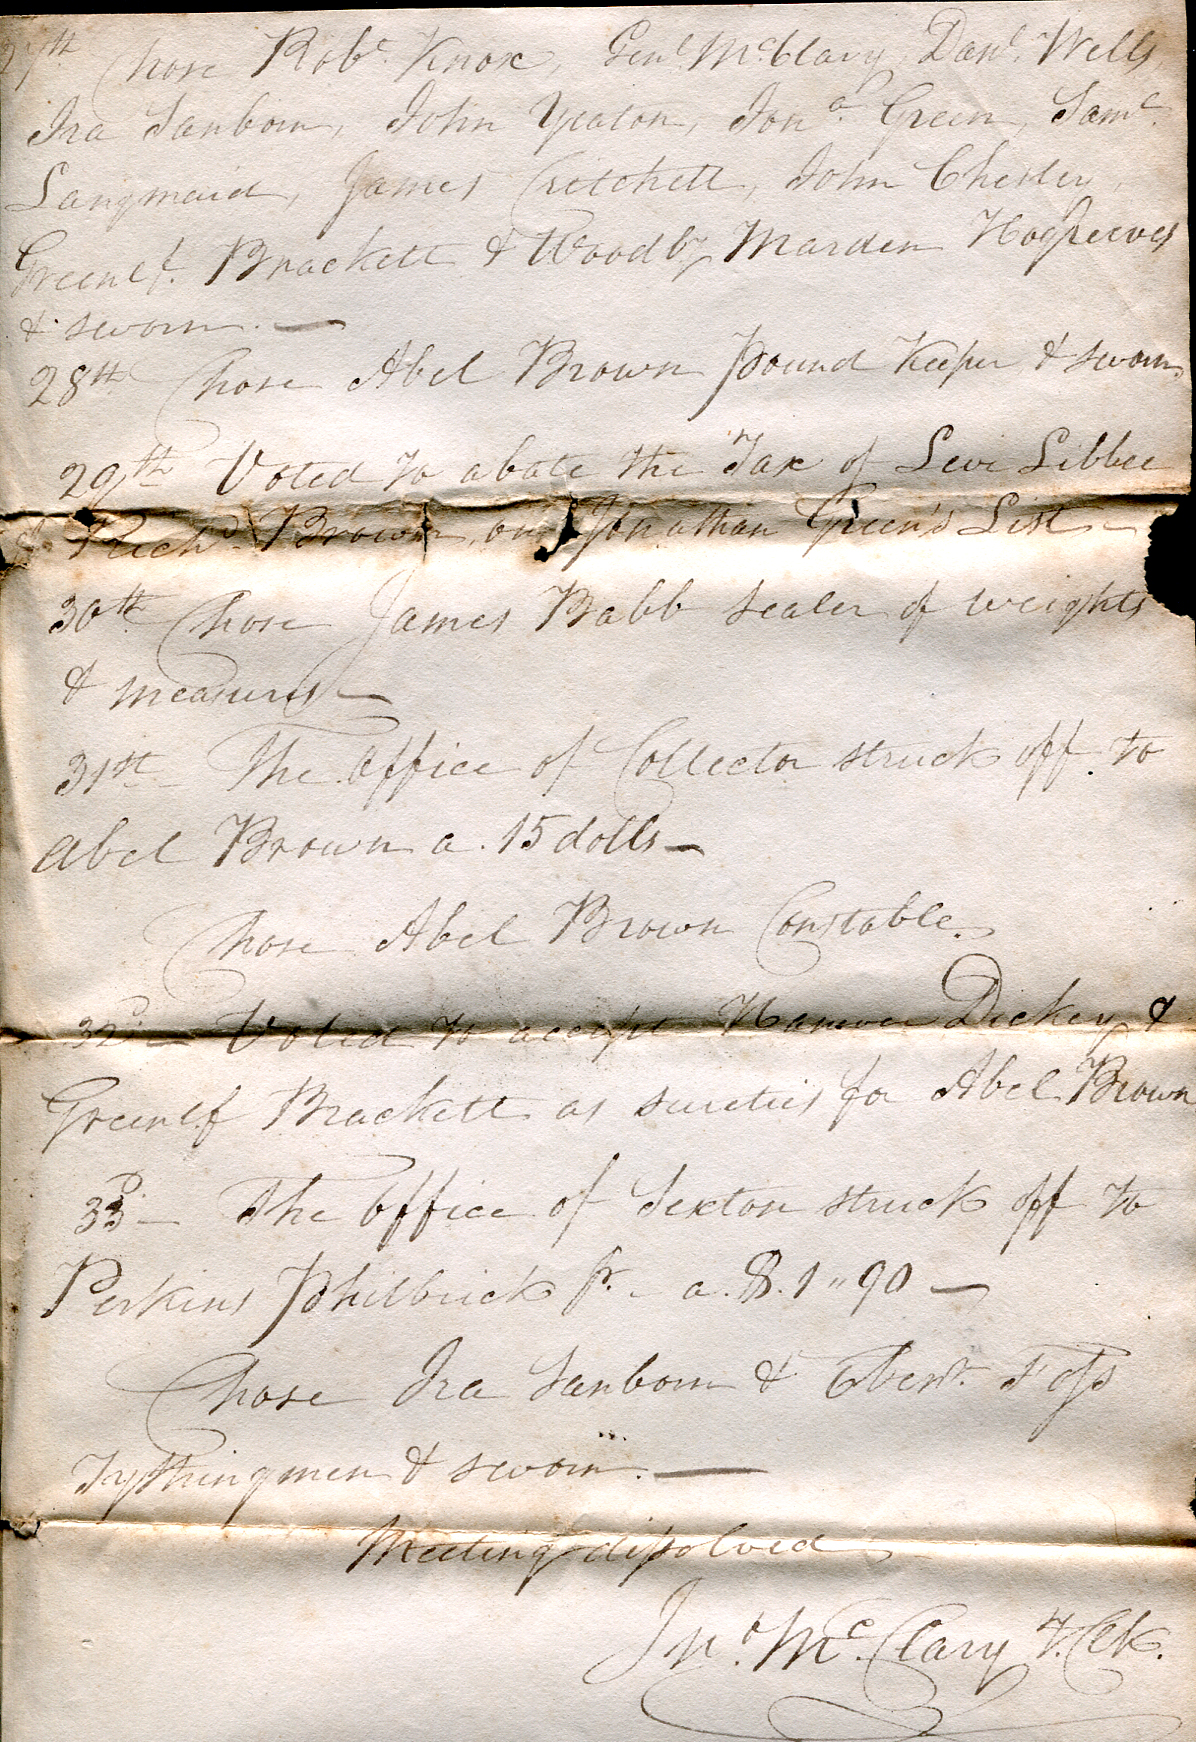 27th Chose Robt. Knox, Genl. McClary, Danl. Wells,
Ira Sanborn, John Yeaton, Jona. Green, Saml.
Langmaid, James Critchett, John Chesley
Greenlf. Brackett & Woodby Marden Hogreeves
& sworn. —
28th Chose Abel Brown pound Keeper & sworn.
29th Voted to abate the Tax of Levi Libbee
& Richd. Brown, on Jonathan Green's List —
30th Chose James Babb Sealer of weights
& measures —
31st — The office of Collector struck off to
Abel Brown a. 15 dolls —
Chose Abel Brown Constable.
32d. — Voted to accept Dickey &
Greenlf Brackett as sureties for Abel Brown
33d. — The office of Sexton struck off to
Perkins Philbrick Jr. — a. $.1"90 —
Chose Ira Sanborn & Ebenr. Foss
Tythingmen & sworn. —
Meeting dissolved
Jno. McClary T. Clk.